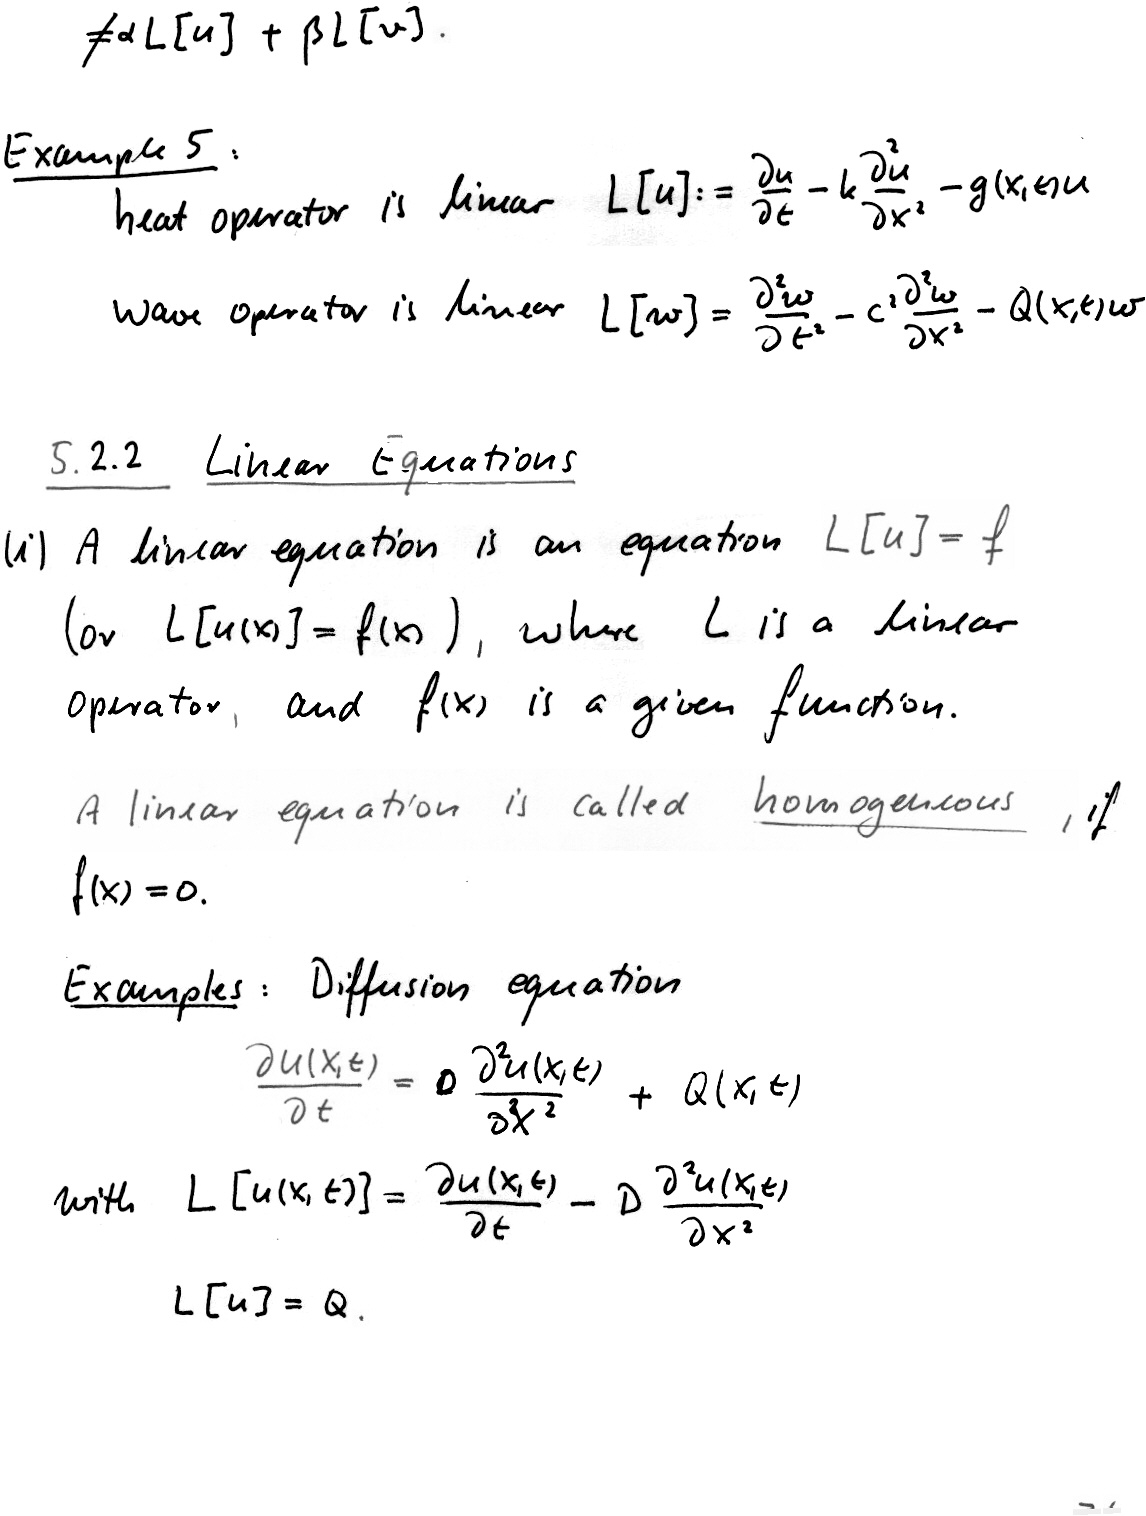 ≠αL[u] + βL[v].
Example 5:
heat operator is linear L[u]:= ∂u/∂t − k ∂²u/∂x² − g(x,t)u
wave operator is linear L[w] = ∂²w/∂t² − c² ∂²w/∂x² − Q(x,t)w
5.2.2 Linear Equations
(i) A linear equation is an equation L[u] = f
(or L[u(x)] = f(x)), where L is a linear
operator, and f(x) is a given function.
A linear equation is called homogeneous, if
f(x) = 0.
Examples: Diffusion equation
∂u(x,t)/∂t = D ∂²u(x,t)/∂x² + Q(x,t)
with L[u(x,t)] = ∂u(x,t)/∂t − D ∂²u(x,t)/∂x²
L[u] = Q.